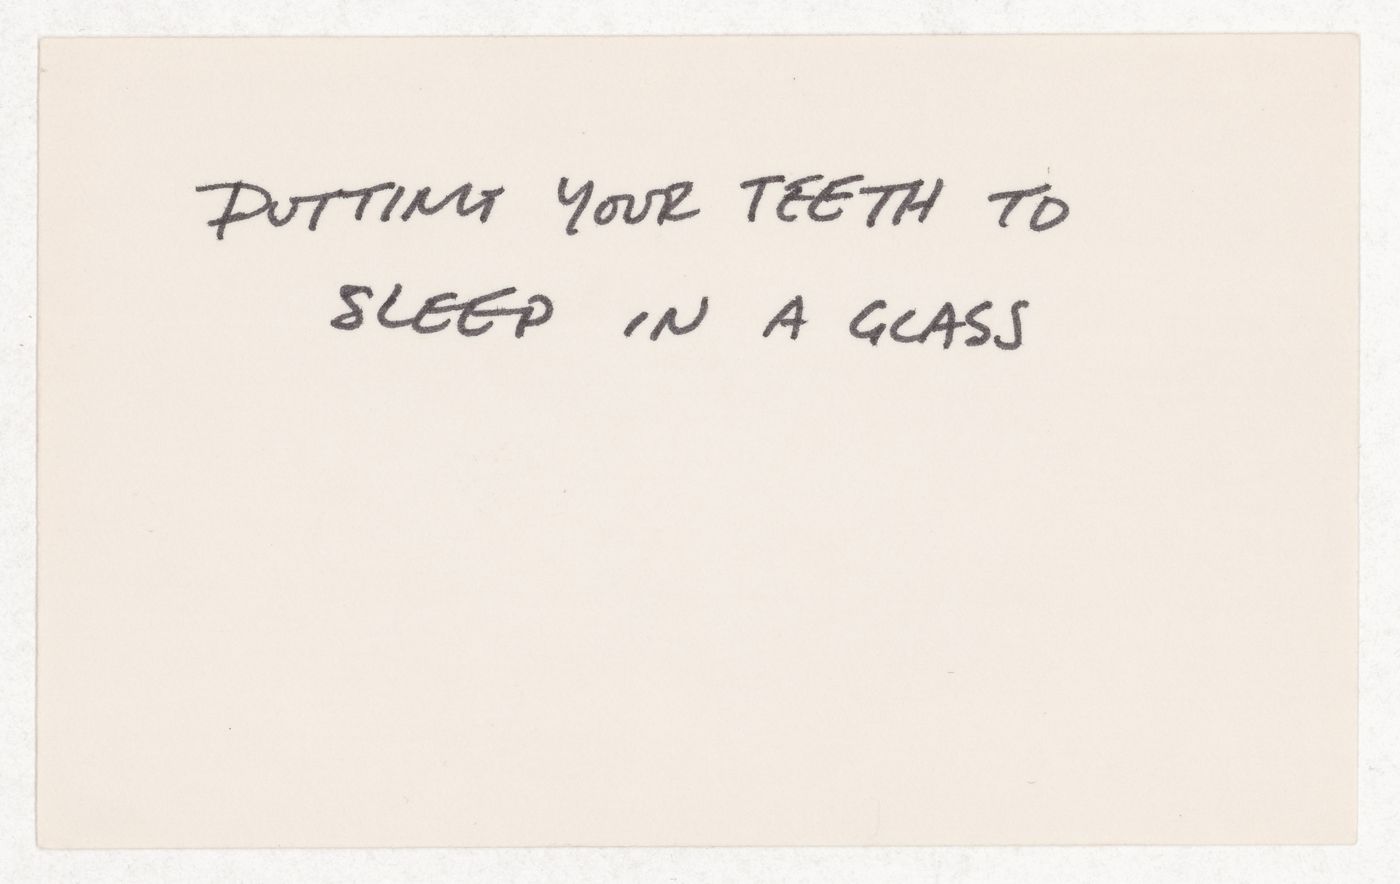 PUTTING YOUR TEETH TO
SLEEP IN A GLASS